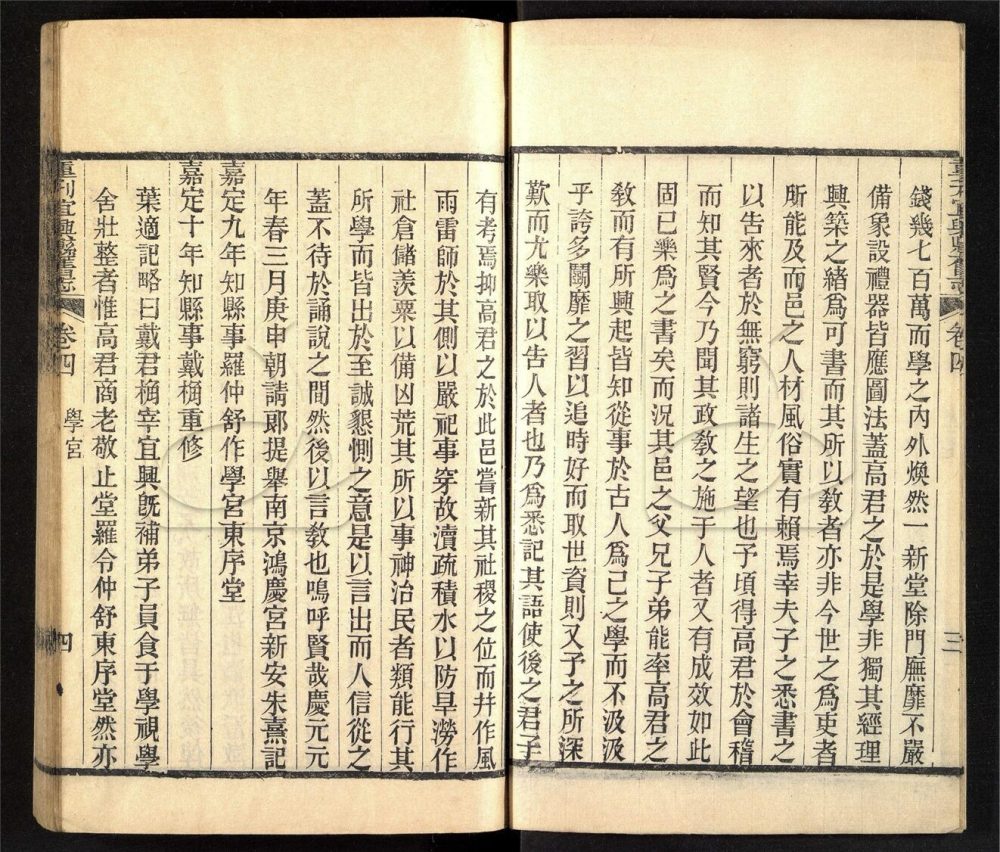 錢幾七百萬而學之內外煥然一新堂除門廡靡不嚴
備象設禮器皆應圖法蓋高君之於是學非獨其經理
興築之緒爲可書而其所以敎者亦非今世之爲吏者
所能及而邑之人材風俗實有賴焉幸夫子之悉書之
以告來者於無窮則諸生之望也予頃得高君於會稽
而知其賢今乃聞其政敎之施于人者又有成效如此
固已樂爲之書矣而況其邑之父兄子弟能率高君之
敎而有所興起皆知從事於古人爲己之學而不汲汲
乎誇多鬬靡之習以追時好而取世資則又予之所深
歎而尤樂取以告人者也乃爲悉記其語使後之君子
有考焉抑高君之於此邑嘗新其社稷之位而幷作風
雨雷師於其側以嚴祀事穿故瀆疏積水以防旱澇作
社倉儲羨粟以備凶荒其所以事神治民者類能行其
所學而皆出於至誠懇惻之意是以言出而人信從之
蓋不待於誦說之間然後以言敎也嗚呼賢哉慶元元
年春三月庚申朝請郞提舉南京鴻慶宮新安朱熹記
嘉定九年知縣事羅仲舒作學宮東序堂
嘉定十年知縣事戴桷重修
葉適記略曰戴君桷宰宜興旣補弟子員食于學視學
舍壯整者惟高君商老敬止堂羅令仲舒東序堂然亦
重刊宜興縣舊志 卷四 學宮 四